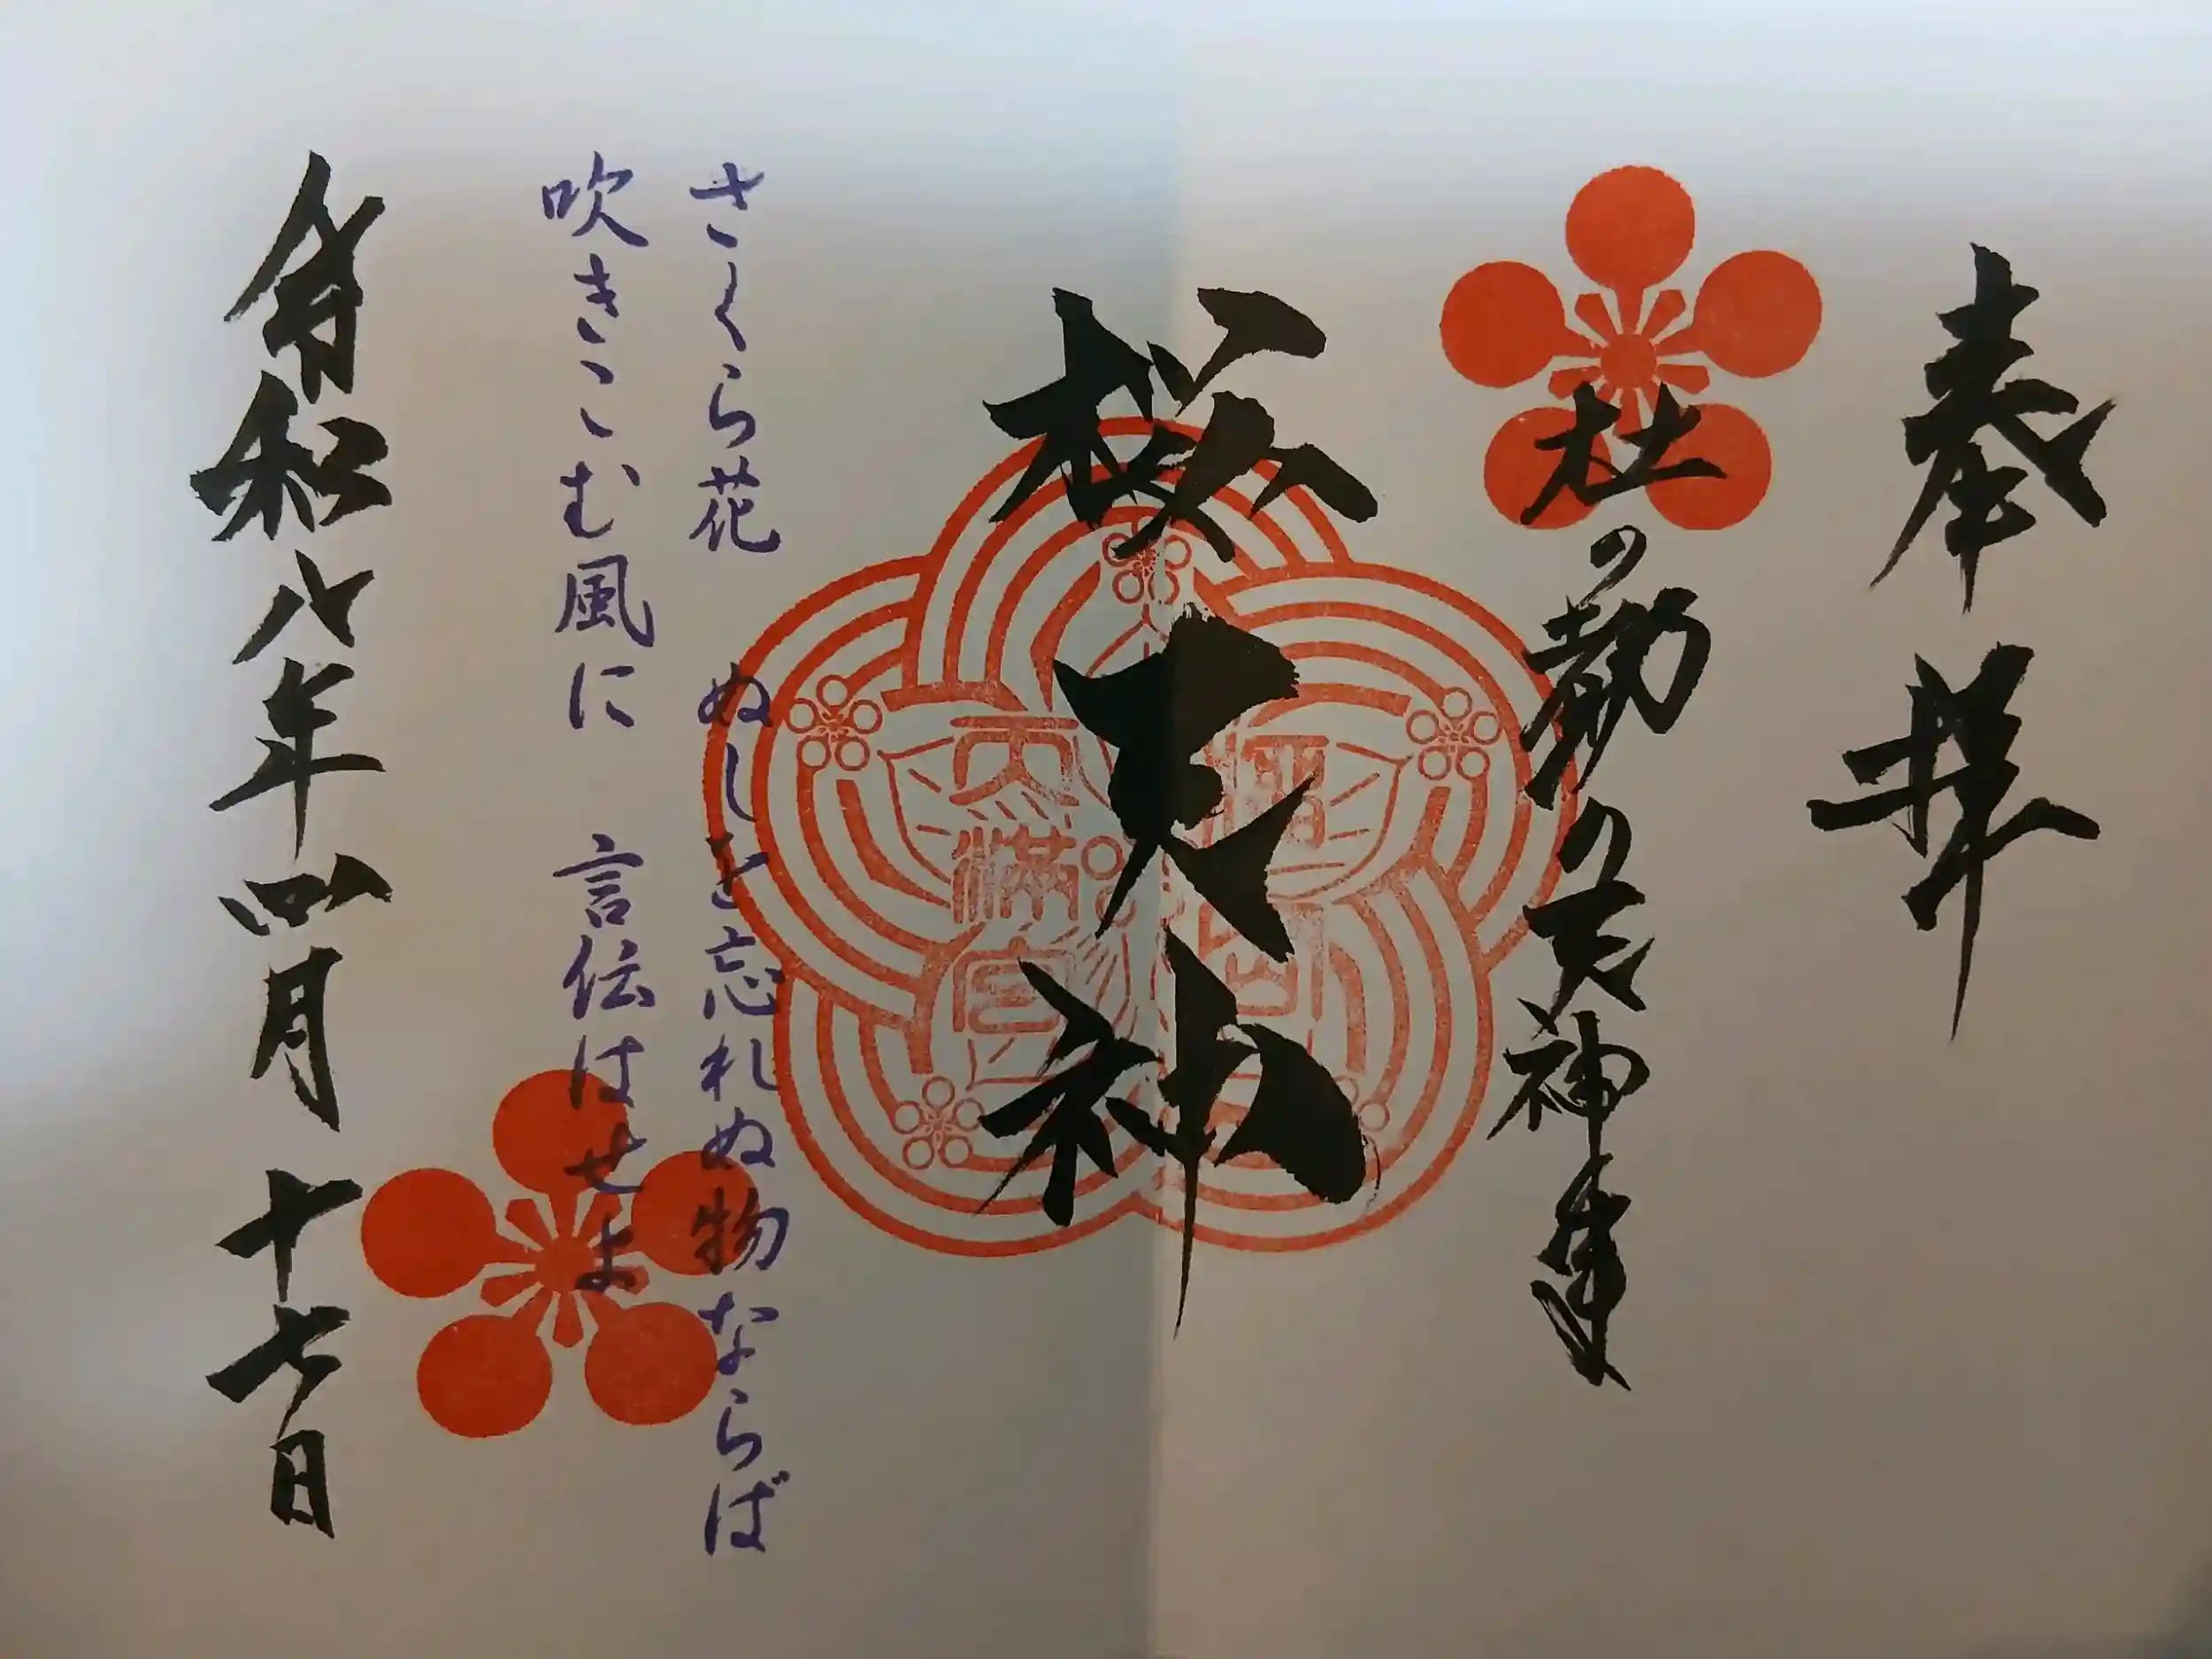 奉拝
杜の勤の天神達
桜天神
さくら花 ぬしを忘れぬ物ならば
吹きこむ風に 言伝はせよ
令和八年四月十七日
天満宮